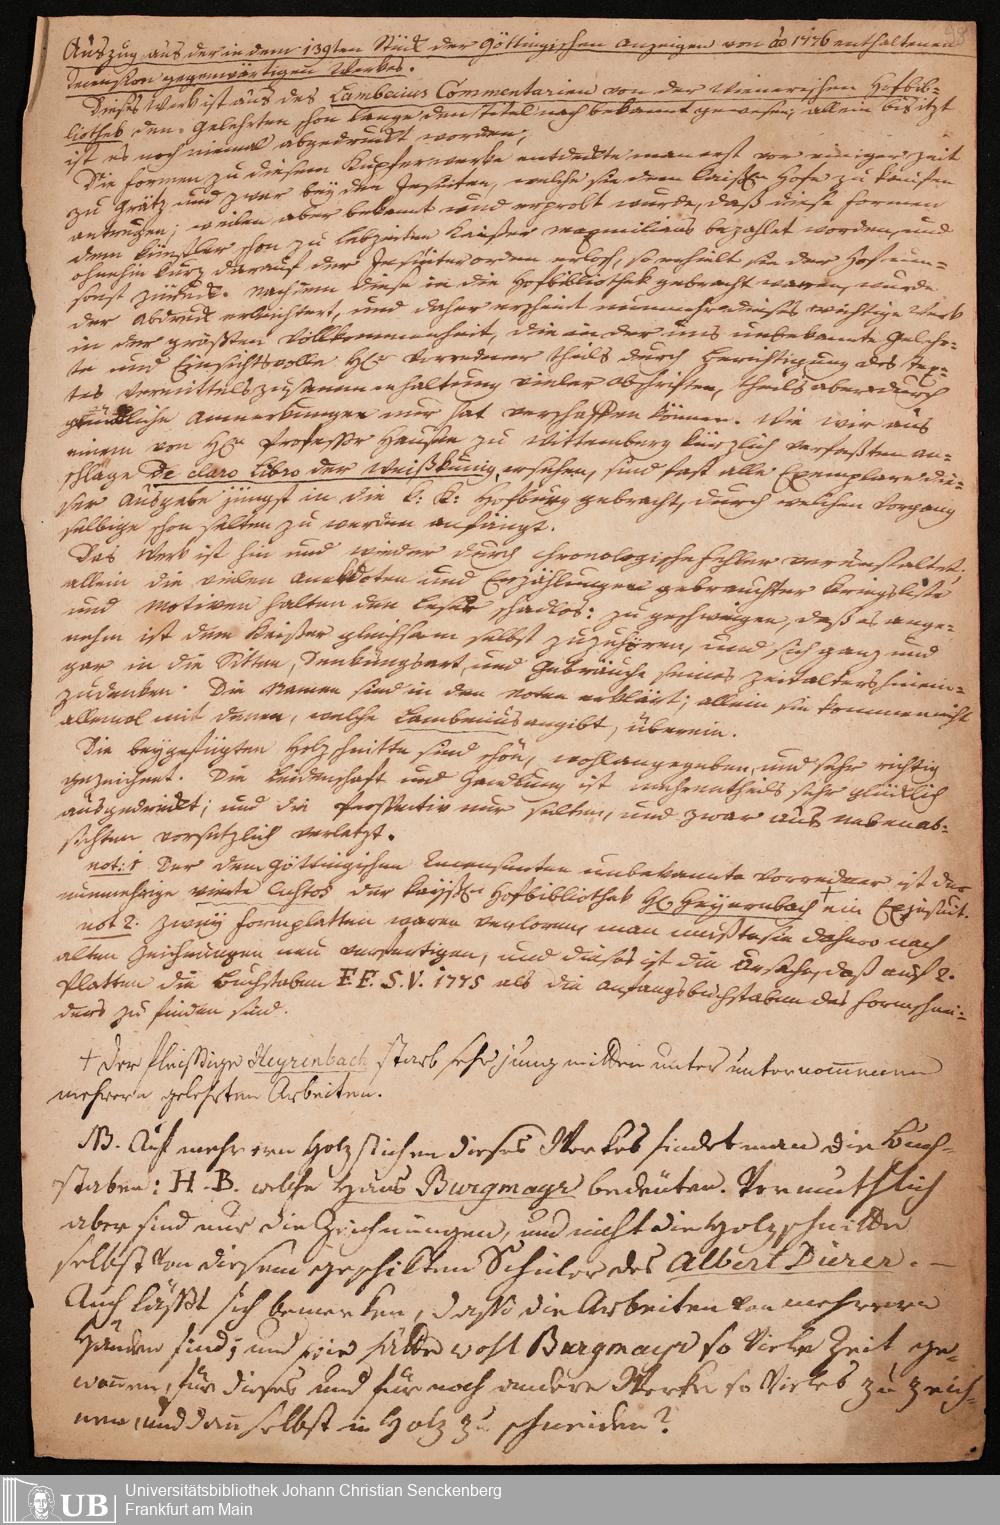 Auszug aus der in dem 139ten Stück der Göttingischen Anzeigen von ao 1776 enthaltenen
Recension gegenwärtigen Werkes.
Dieses Werk ist aus des Lambecius Commentarien von der Wienerischen Hofbib-
liothek den Gelehrten schon lange dem Titel nach bekannt gewesen, allein bis itzt
ist es noch niemal abgedruckt worden,
Die Formen zu diesem Kupferwerke entdeckte man erst vor einiger Zeit
zu Grätz und zwar bey den Jesuiten, welche sie dem kaisl. Hofe zu kaufen
antrugen; weilen aber bekannt und erprobt wurde, daß diese Formen
dem Künstler schon zu Lebzeiten Kaiser Maxmilians bezahlet worden, und
ohnehin kurz darauf der Jesuiterorden erlosch, so erhielt sie der Hof um-
sonst zurück. Nachdem diese in die Hofbibliothek gebracht waren, wurde
der Abdruck erleichtert, und daher erscheint nunmehro dieses wichtige Werk
in der größten Vollkommenheit, die ein der uns unbekannte Gelehr-
te und Einsichtsvolle Hr. Vorredner theils durch Berichtigung des Tex-
tes vermittels zusammenhaltung vieler Abschriften, theils aber durch
gründliche Anmerkungen nur hat verschaffen können. Wie wir aus
einem von Hr. Professor Hausen zu Wittemberg kürzlich verfaßten An-
schlage De claro Libro der Weißkunig, ersehen, sind fast alle Exemplare die-
ser Ausgabe jüngst in die k: k: Hofburg gebracht, durch welchen Vorgang
selbige schon selten zu werden anfängt.
Das Werk ist hin und wieder durch chronologische Fehler verunstaltet,
allein die vielen Anekdoten und Erzählungen gebrauchter Kriegsliste
und Motiven halten den Leser schadlos: zu geschweigen, daß es ange-
nehm ist dem Kaiser gleichsam selbst zuzuhören, und sich ganz und
gar in die Sitten, Denkungsart, und Gebräuche seines Zeitalters hinein-
zudenken. Die Namen sind in den Noten erklärt; allein sie kommen nicht
allemal mit denen, welche Lambecius angibt, überein.
Die beygefügten Holzschnitte sind schön, wohlangegeben, und sehr richtig
gezeichnet. Die Leidenschaft und Handlung ist mehrentheils sehr glücklich
ausgedrückt; und die Prospectiv nur selten, und zwar aus Nebenab-
sichten vorsetzlich verletzt.
not: 1 Der dem Göttingischen Recensenten unbekannte Vorredner ist der
nunmehrige vierte Custos der kayßl. Hofbibliothek Hr. Heyrenbach + ein Exjesuit.
not 2. Zwey Formplatten waren verloren, man mußte sie dahero nach
alten Zeichnungen neu verfertigen, und dieses ist die Ursache, daß auf 2.
Platten die Buchstaben F.F.S.V. 1775 als die Anfangsbuchstaben des Formschnei-
ders zu finden sind.
+ Der fleissige Heyrenbach starb sehr jung mitten unter unternommenen
mehrern gelehrten Arbeiten.
NB. Auf mehreren Holzstichen dieses Werkes findet man die Buch-
staben: H. B. welche Hans Burgmayr bedeuten. Vermuthlich
aber sind nur die Zeichnungen, und nicht die Holzschnitte
selbst von diesem geschikten Schüler des Albert Dürer. —
Auch läßt sich bemerken, dass die Arbeiten von mehrern
Händen sind; und wie hätte wohl Burgmayr so viele Zeit ge-
wonnen, für dieses und für noch andere Werke so vieles zu zeich-
nen, und dann selbst in Holz zu schneiden?
UB
Universitätsbibliothek Johann Christian Senckenberg
Frankfurt am Main